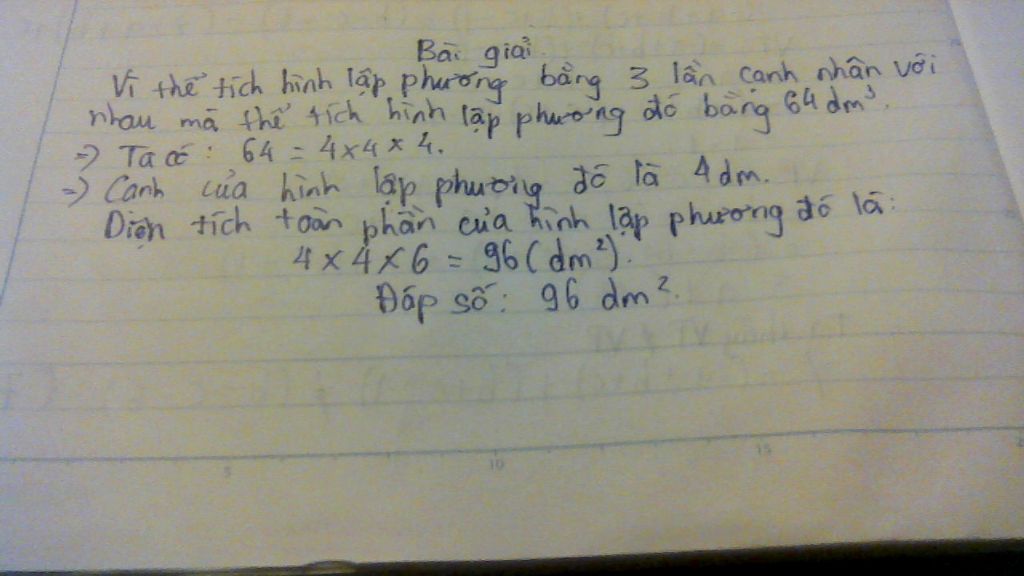 Bài giải
Vì thể tích hình lập phương bằng 3 lần cạnh nhân với
nhau mà thể tích hình lập phương đó bằng 64 dm³.
=> Ta có: 64 = 4 x 4 x 4.
=> Cạnh của hình lập phương đó là 4 dm.
Diện tích toàn phần của hình lập phương đó là:
4 x 4 x 6 = 96 (dm²).
Đáp số: 96 dm².
5 10 15